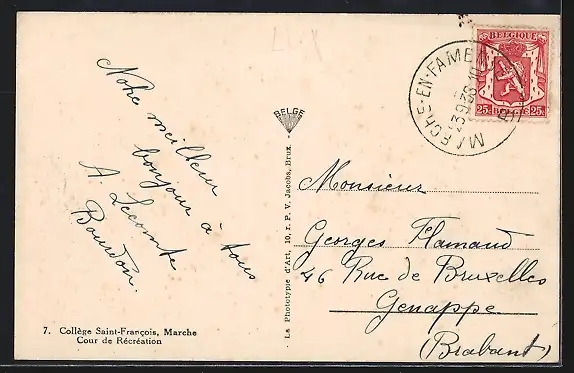 Notre meilleur
bonjour à tous
A. Lecomte
Bourdon.
7. Collège Saint-François, Marche
Cour de Récréation
BELGE
La Phototypie d'Art, 10, r. P. V. Jacobs, Brux.
MARCHE-EN-FAMENNE
BELGIQUE
25c BELGIE 25c
Monsieur
Georges Flamand
46 Rue de Bruxelles
Genappe
(Brabant)